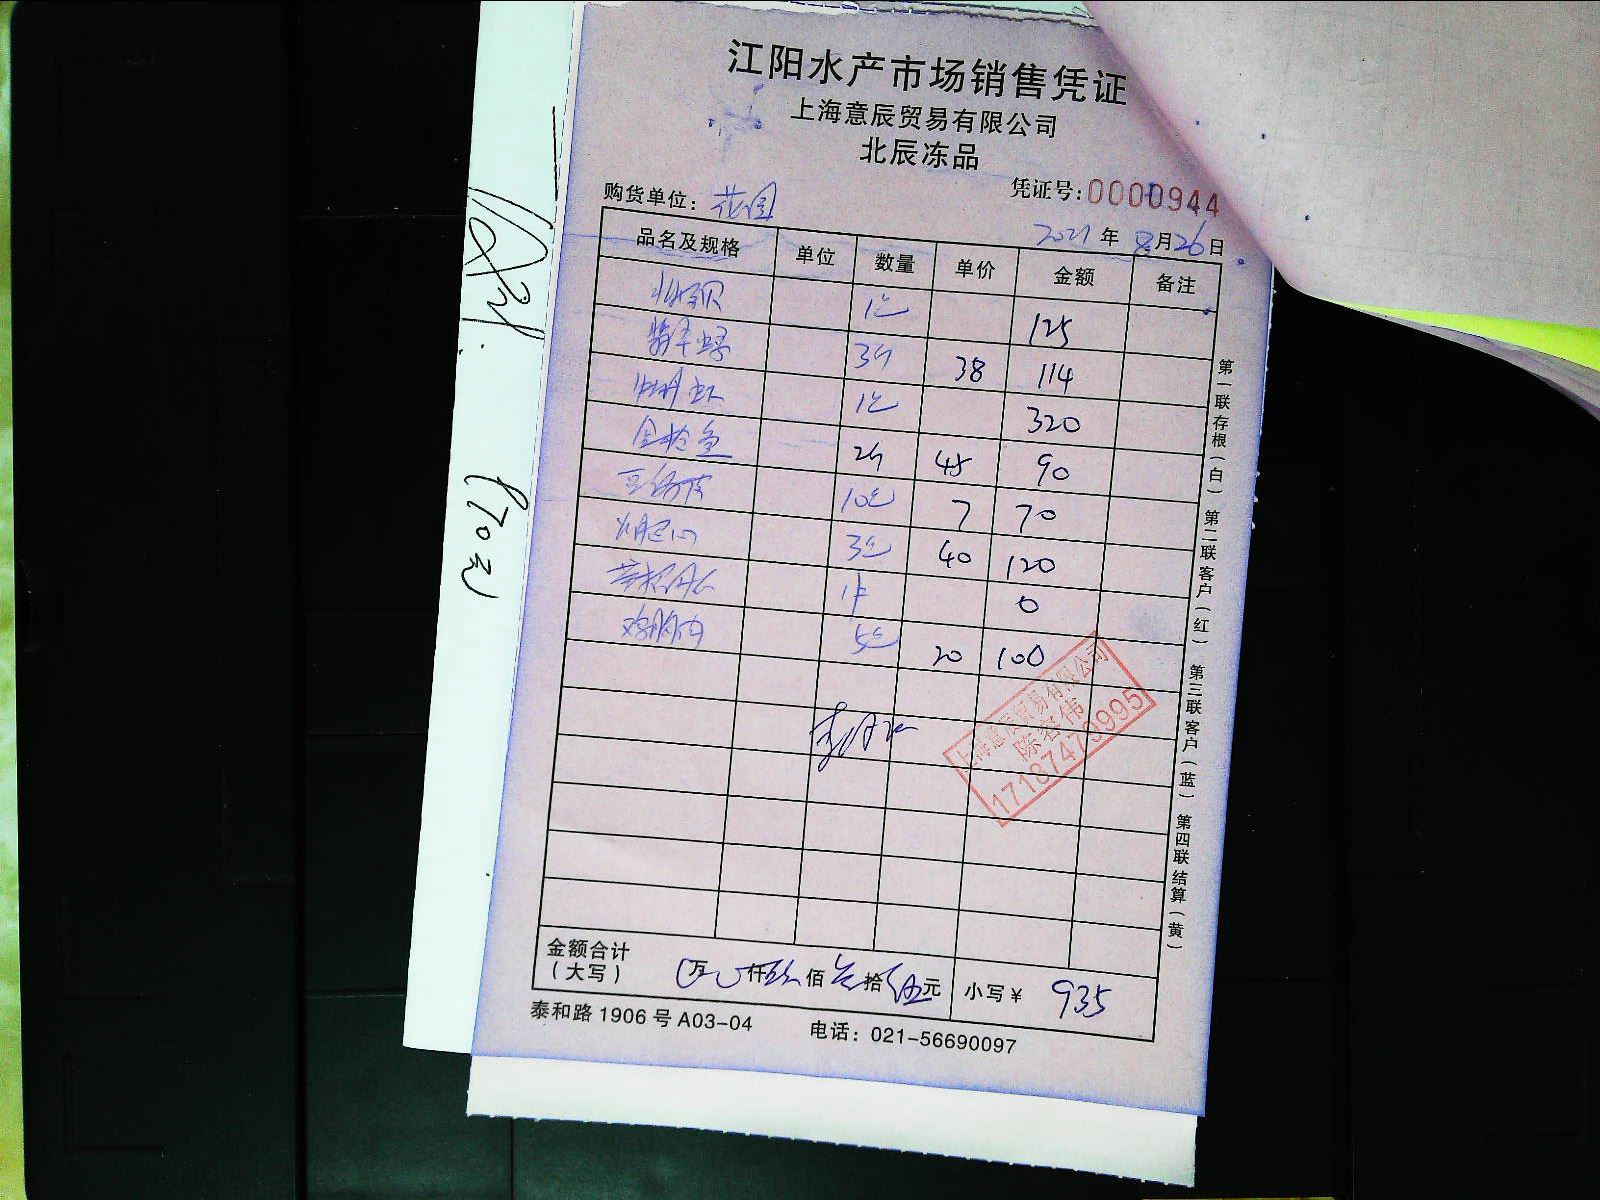 江阳水产市场销售凭证
上海意辰贸易有限公司
北辰冻品
凭证号:0000944
购货单位: 花园
2021 年 8 月 26 日
品名及规格 单位 数量 单价 金额 备注
1包 125
3斤 38 114
虾 1包 320
金枪鱼 2斤 45 90
10包 7 70
3包 40 120
1件 0
鸡胸肉 5包 20 100
上海意辰贸易有限公司
陈容伟
17187479995
金额合计
(大写) 万 仟 佰 拾 伍 元 小写¥ 935
泰和路 1906 号 A03-04 电话: 021-56690097
第一联存根(白) 第二联客户(红) 第三联客户(蓝) 第四联结算(黄)